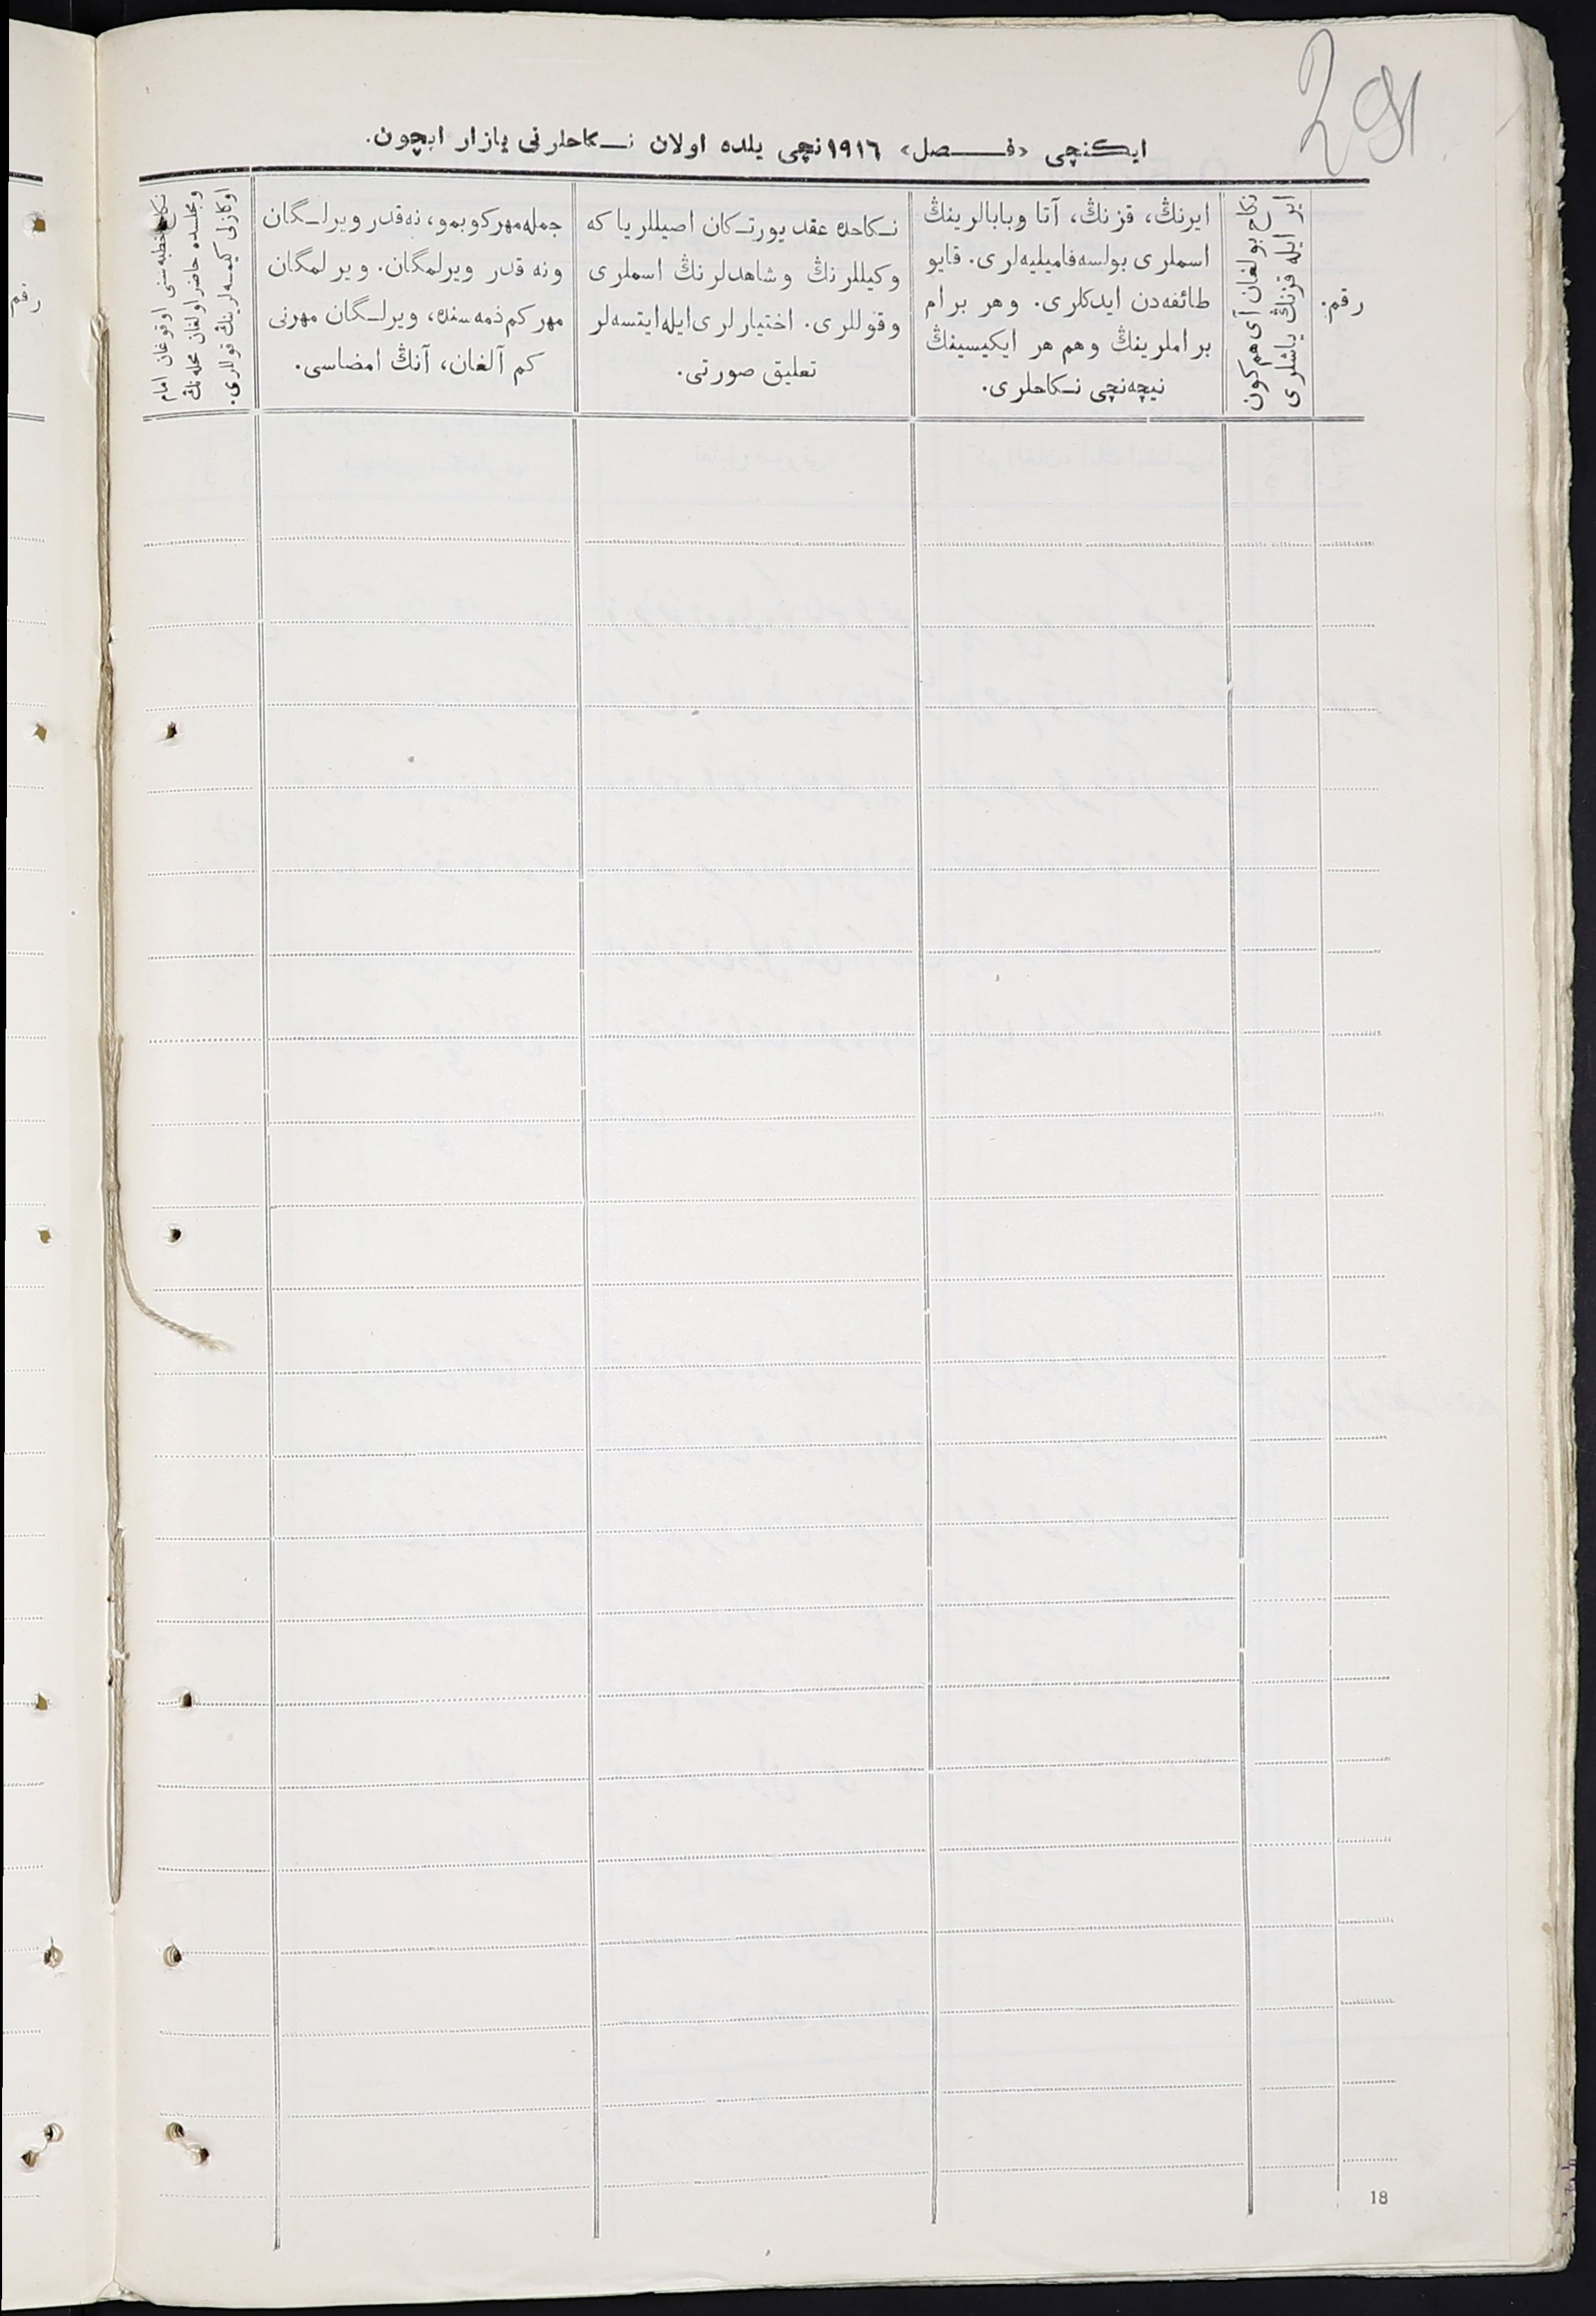 291
ایکنچی «فصل» ١٩١٦نچی یلده اولان نکاحلرنی یازار ایچون.
رقم
نکاح بولغان آی هم کون
ایر ایله قزنڭ یاشلری
ایرنڭ، قزنڭ، آتا وبابالرینڭ
اسملری بولسه فامیلیه‌لری. قایو
طائفه‌دن ایدکلری. وهر برام
براملرینڭ وهم هر ایکیسینڭ
نیچه‌نچی نکاحلری.
نکاحده عقد یورتکان اصیللریا که
وکیللرنڭ وشاهدلرنڭ اسملری
وقوللری. اختیارلری ایله ایتسه‌لر
تعلیق صورتی.
جمله مهر کوبمو، نه‌قدر ویرلگان
ونه قدر ویرلمگان. ویرلمگان
مهر کم ذمه‌سنده، ویرلگان مهرنی
کم آلغان، آنڭ امضاسی.
نکاح خطبه‌سنی اوقوغان امام
ومجلسده حاضر اولغان محله‌نڭ
اوکازلی کیمسه‌لرینڭ قوللاری.
رقم
18